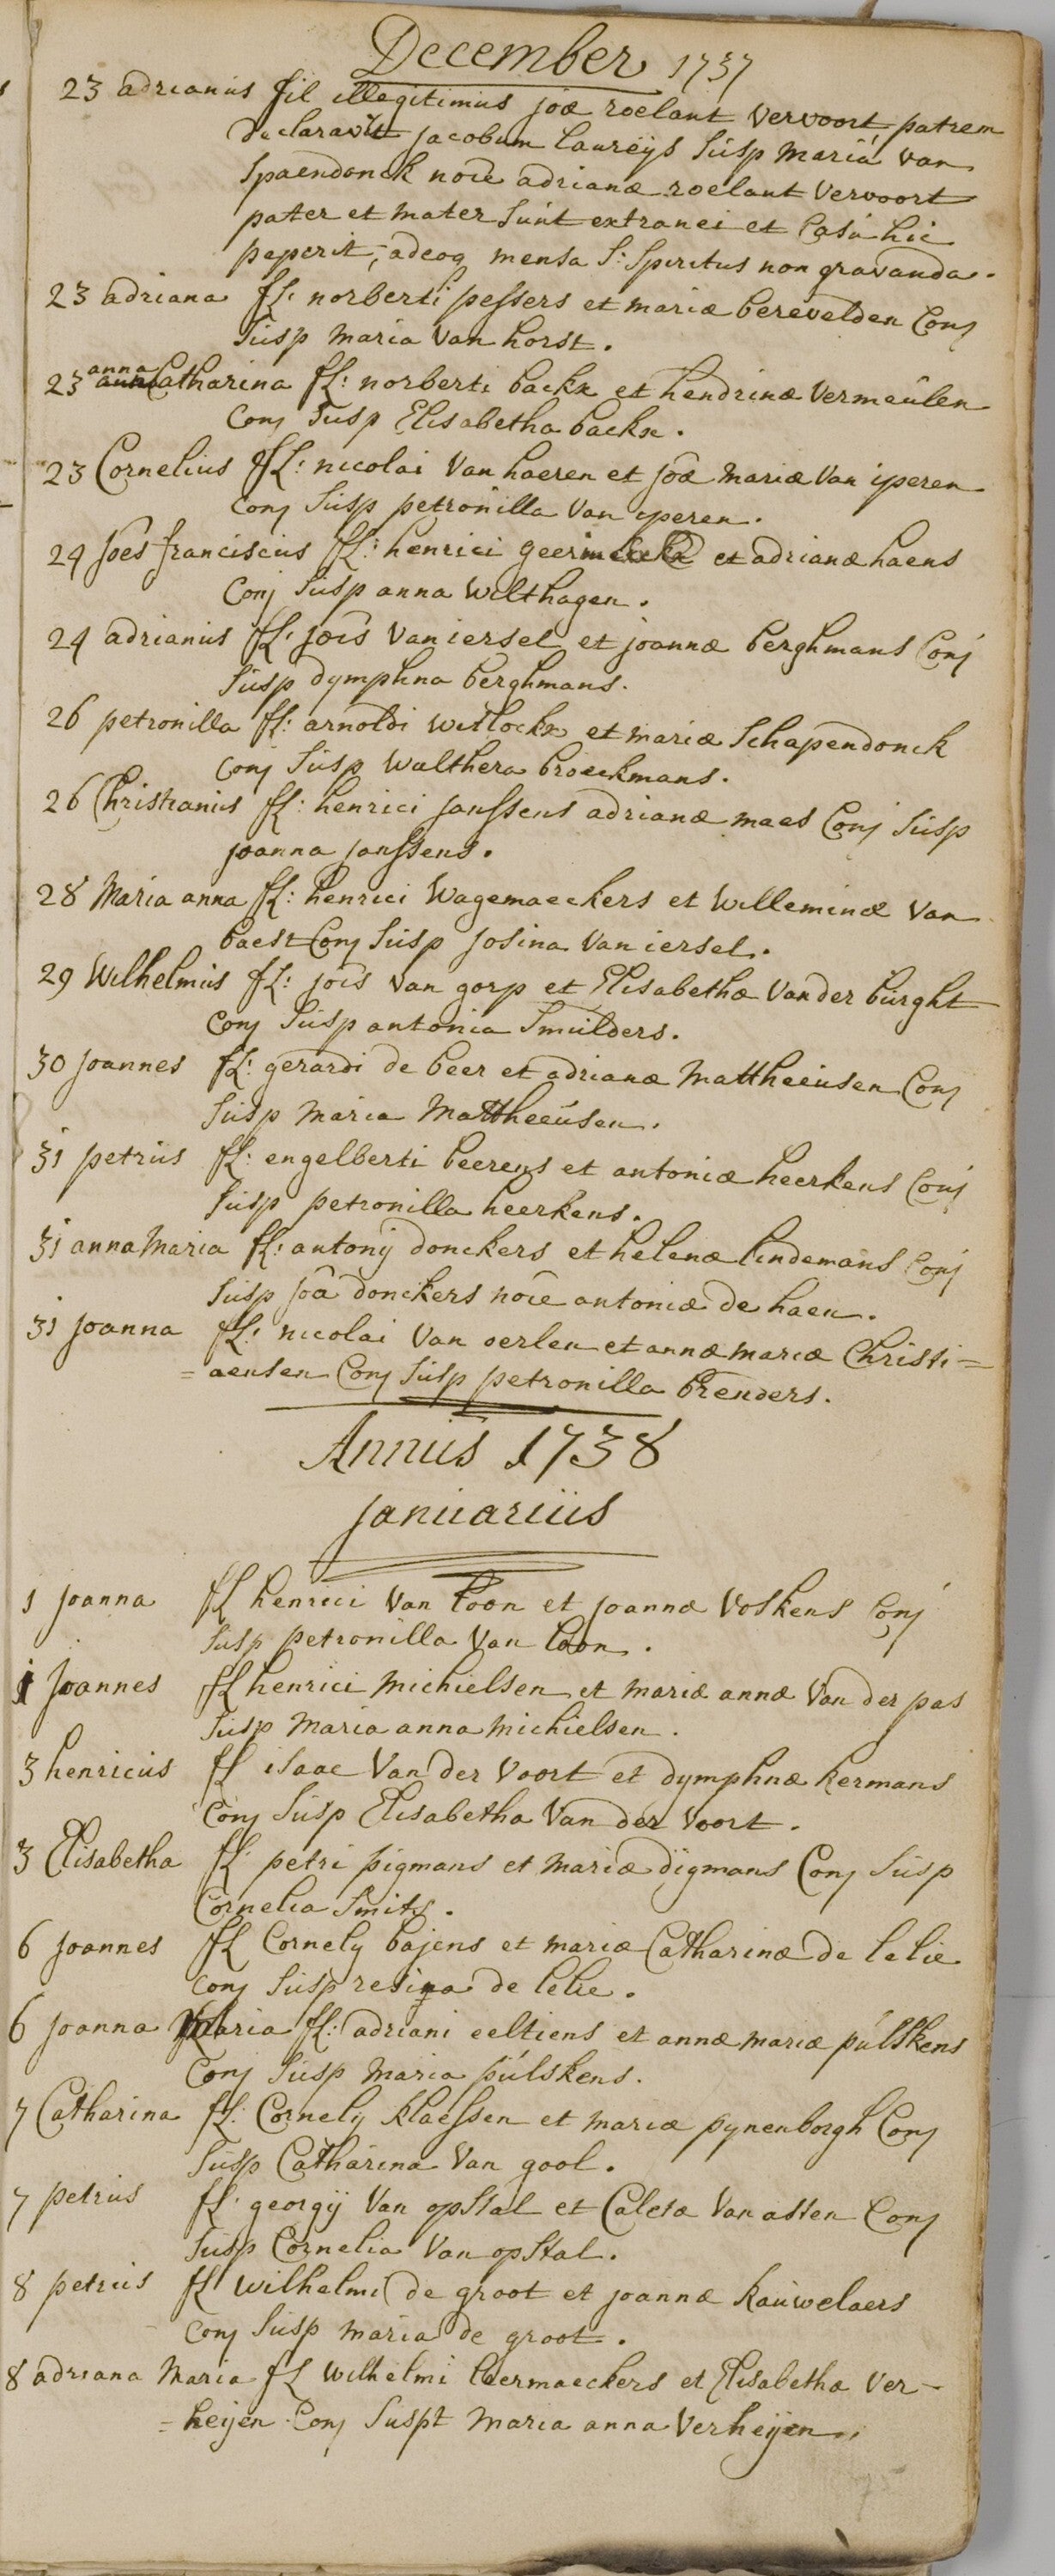 December 1737
23 adrianus fil illegitimus joæ roelant vervoort, patrem
declaravit jacobum laureijs susp maria van
spaendonck noîe adrianæ roelant vervoort
pater et mater sunt extranei et casu hic
peperit, adeoq mensa S: Spiritus non gravanda.
23 adriana fl: norberti pessers et mariæ berevelden Conj
susp maria van horst.
23 anna Catharina fl: norberti backx et hendrinæ vermeulen
Conj susp Elisabetha backx.
23 Cornelius fl: nicolai van haeren et joæ mariæ van iperen
Conj susp petronilla van iperen.
24 joês franciscus fl: henrici et adrianæ haens
Conj susp anna wilthagen.
24 adrianus fl: joîs van iersel et joannæ berghmans Conj
susp dymphna berghmans.
26 petronilla fl: arnoldi witlockx et mariæ schapendonck
Conj susp walthera broeckmans.
26 Christianus fl: henrici janssens adrianæ maes Conj susp
joanna janssens.
28 Maria anna fl: henrici wagemaeckers et willeminæ van
baest Conj susp josina van iersel.
29 wilhelmus fl: joîs van gorp et Elisabethæ van der burght
Conj susp antonia smulders.
30 joannes fl: gerardi de beer et adrianæ mattheeusen Conj
susp maria mattheeusen.
31 petrus fl: engelberti beerens et antoniæ heerkens Conj
susp petronilla heerkens.
31 anna maria fl: antonij donckers et helenæ lindemans Conj
susp joâ donckers noîe antoniæ de haen.
31 joanna fl: nicolai van oerlen et annæ mariæ Christi=
=aensen Conj susp petronilla brenders.
Annus 1738
januarius
1 joanna fl henrici van loon et joannæ voskens Conj
susp petronilla van loon.
1 joannes fl henrici michielsen et mariæ annæ van der pas
susp maria anna michielsen.
3 henricus fl isaac van der voort et dymphnæ kermans
Conj susp Elisabetha van der voort.
3 Elisabetha fl: petri pigmans et mariæ digmans Conj susp
Cornelia smits.
6 joannes fl Cornely bajens et mariæ Catharinæ de lelie
Conj susp resina de lelie.
6 joanna maria fl: adriani eeltiens et annæ mariæ pulskens
Conj susp maria pulskens.
7 Catharina fl: Cornely klaessen et mariæ pynenborgh Conj
susp Catharina van gool.
7 petrus fl: georgij van opstal et Caletæ van asten Conj
susp Cornelia van opstal.
8 petrus fl wilhelmi de groot et joannæ kauwelaers
Conj susp maria de groot.
8 adriana maria fl wilhelmi leermaeckers et Elisabetha ver-
=heijen Conj suspt maria anna verheijen.